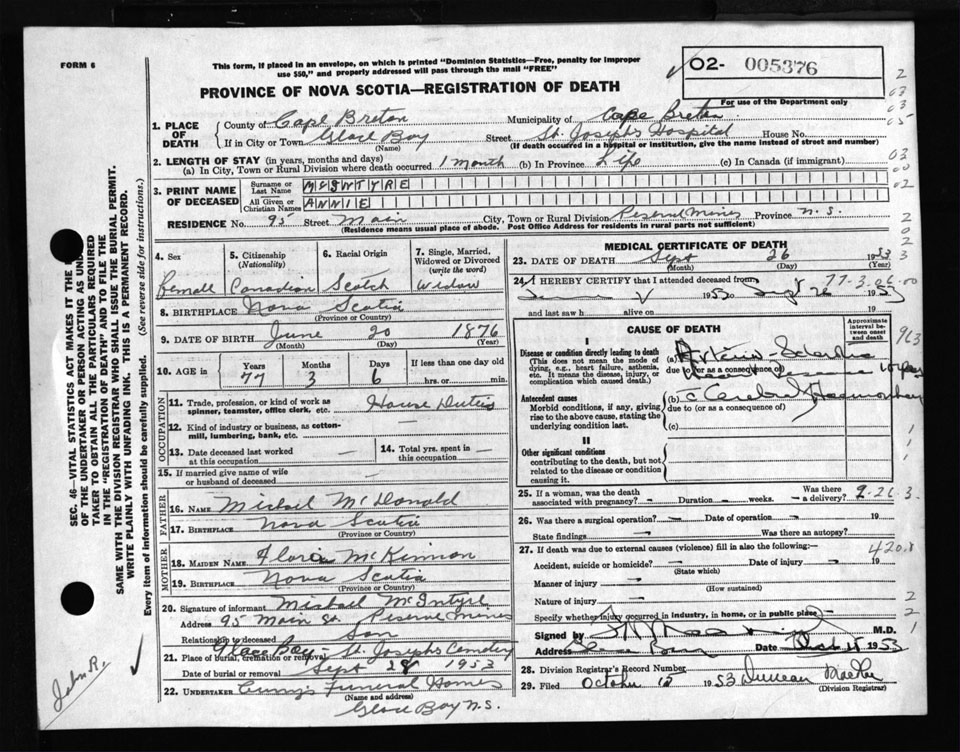 FORM 6
This form, if placed in an envelope, on which is printed "Dominion Statistics—Free, penalty for improper
use $50," and properly addressed will pass through the mail "FREE"
PROVINCE OF NOVA SCOTIA—REGISTRATION OF DEATH
02- 005376
For use of the Department only
1. PLACE OF DEATH County of Cape Breton Municipality of Cape Breton
If in City or Town Glace Bay (Name) Street St. Josephs Hospital House No.
(If death occurred in a hospital or institution, give the name instead of street and number)
2. LENGTH OF STAY (in years, months and days)
(a) In City, Town or Rural Division where death occurred 1 month (b) In Province Life (c) In Canada (if immigrant)
3. PRINT NAME OF DECEASED
Surname or Last Name McINTYRE
All Given or Christian Names ANNIE
RESIDENCE No. 95 Street Main City, Town or Rural Division Reserve Mines Province N.S.
(Residence means usual place of abode. Post Office Address for residents in rural parts not sufficient)
4. Sex Femall
5. Citizenship (Nationality) Canadian
6. Racial Origin Scotch
7. Single, Married, Widowed or Divorced (write the word) Widow
8. BIRTHPLACE Nova Scotia
(Province or Country)
9. DATE OF BIRTH June 20 1876
(Month) (Day) (Year)
10. AGE in Years 77 Months 3 Days 6 If less than one day old hrs. or min.
OCCUPATION
11. Trade, profession, or kind of work as spinner, teamster, office clerk, etc. House Duties
12. Kind of industry or business, as cotton-mill, lumbering, bank, etc. —
13. Date deceased last worked at this occupation —
14. Total yrs. spent in this occupation —
15. If married give name of wife or husband of deceased —
FATHER
16. NAME Michael McDonald
17. BIRTHPLACE Nova Scotia
(Province or Country)
MOTHER
18. MAIDEN NAME Flora McKinnon
19. BIRTHPLACE Nova Scotia
(Province or Country)
20. Signature of informant Michael McIntyre
Address 95 Main St. Reserve Mines
Relationship to deceased Son
21. Place of burial, cremation or removal Glace Bay - St. Josephs Cemetery
Date of burial or removal Sept 28 1953
22. UNDERTAKER Funeral Homes
(Name and address)
Glace Bay N.S.
MEDICAL CERTIFICATE OF DEATH
23. DATE OF DEATH Sept 26 1953
(Month) (Day) (Year)
77-3-06-00
24. I HEREBY CERTIFY that I attended deceased from
1953 to Sept 26 1953
and last saw h alive on 19
CAUSE OF DEATH
Approximate interval between onset and death
I
Disease or condition directly leading to death
(This does not mean the mode of dying, e.g., heart failure, asthenia, etc. It means the disease, injury, or complication which caused death.)
(a)
due to (or as a consequence of)
Antecedent causes
Morbid conditions, if any, giving rise to the above cause, stating the underlying condition last.
(b) c Cerebral Haemorrhage
due to (or as a consequence of)
(c)
II
Other significant conditions
contributing to the death, but not related to the disease or condition causing it.
25. If a woman, was the death associated with pregnancy? - Duration - weeks. Was there a delivery?
9-26-3
26. Was there a surgical operation? — Date of operation — 19
State findings — Was there an autopsy? -
27. If death was due to external causes (violence) fill in also the following:—
Accident, suicide or homicide? — Date of injury → 19
(State which)
420.1
Manner of injury —
(How sustained)
Nature of injury —
Specify whether injury occurred in industry, in home, or in public place -
Signed by M.D.
Address Glace Bay Date 1953
28. Division Registrar's Record Number
29. Filed October 15 1953 Duncan
(Division Registrar)
SEC. 46—VITAL STATISTICS ACT MAKES IT THE
OF THE UNDERTAKER OR PERSON ACTING AS UNDER
TAKER TO OBTAIN ALL THE PARTICULARS REQUIRED
IN THE "REGISTRATION OF DEATH" AND TO FILE THE
SAME WITH THE DIVISION REGISTRAR WHO SHALL ISSUE THE BURIAL PERMIT.
WRITE PLAINLY WITH UNFADING INK. THIS IS A PERMANENT RECORD.
Every item of information should be carefully supplied. (See reverse side for instructions.)
John R.